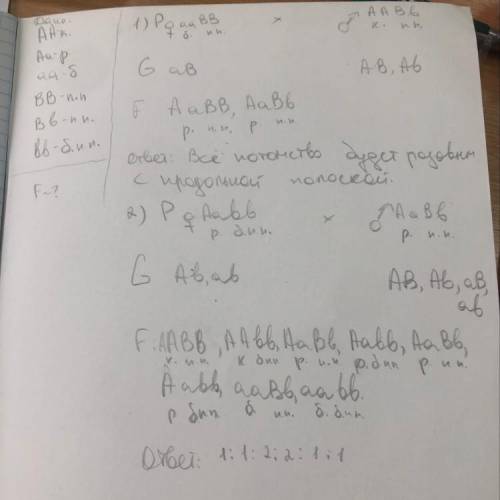 Дано:
АА-к.
Аа-р.
аа-б
ВВ-п.п
Вв-п.п.
вв-б.п.п.
F-?
1) Р ♀ ааВВ × ♂ ААВв
б. п.п. к. п.п.
G аВ АВ, Ав
F АаВВ, АаВв
р. п.п, р п.п
ответ: Всё потомство будет розовым
с продольной полоской.
2) Р ♀ Аавв × ♂ АаВв
р. бпп р. п.п.
G Ав, ав АВ, Ав, аВ,
ав
F: ААВВ, ААвв, АаВв, Аавв, АаВв,
к. п.п. к бпп р. п.п р. бпп р. п.п.
Аавв, ааВв, аавв.
р бпп б пп. б. бпп.
Ответ: 1:1:2:2:1:1